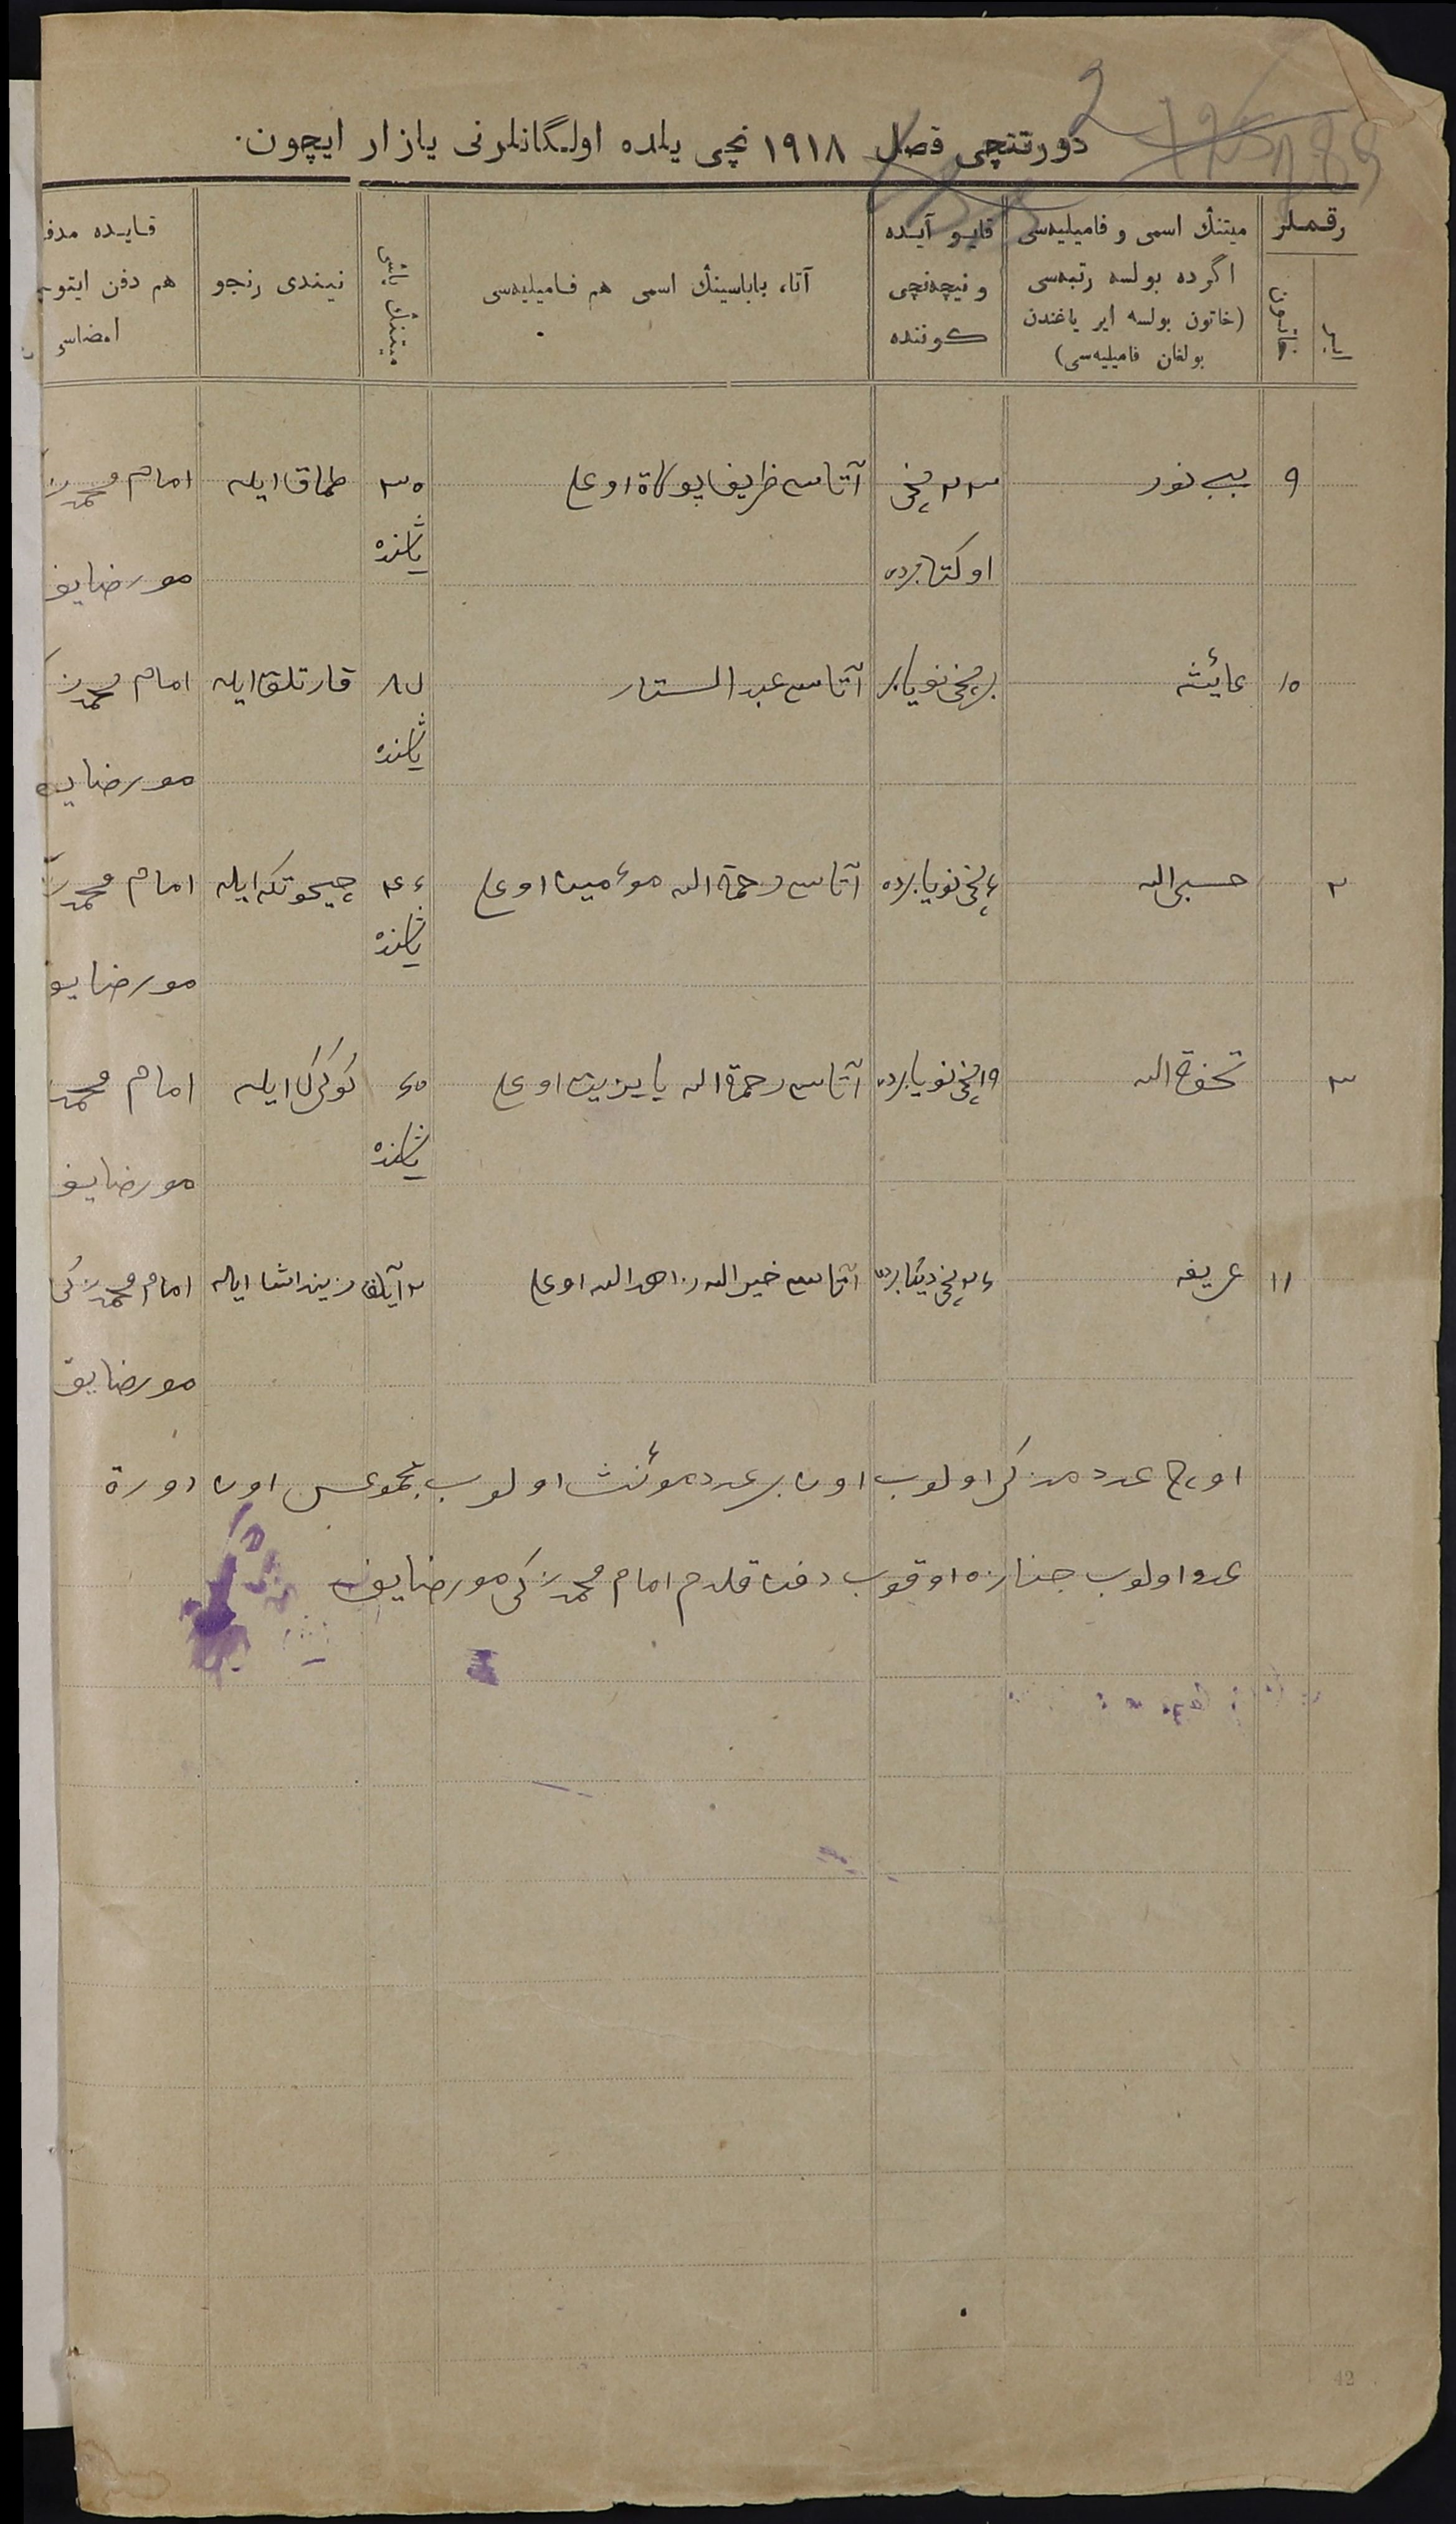 دورتنچی فصل ۱۹۱۸ نچی یلده اولگانلرنی یازار ایچون.
رقملر
ایر
خاتون
میتنڭ اسمی و فامیلیه‌سی
اگرده بولسه رتبه‌سی
(خاتون بولسه ایر یاغندن
بولغان فامیلیه‌سی)
قایو آیده
و نیچه‌نچی
کوننده
آتا، باباسینڭ اسمی هم فامیلیه‌سی
میتنڭ یاشی
نیندی رنجو
قایده مدف
هم دفن ایتو
امضاسی
۹ بی‌بی نور ۲۳ نچی آتاسی ظریف پولاد اوغلی ۳۰ طماق ایله امام محمد ز
اوکتابرده یاشنده مورضایف
۱۰ عائشه برنچی نویابر آتاسی عبد الستار ۸۷ قارتلق ایله امام محمد ز
یاشنده مورضای
۲ حسبی الله ۶ نچی نویابرده آتاسی رحمة الله مؤمین اوغلی ۴۶ چیحوتکه ایله امام محمد ز
یاشنده مورضایو
۳ تحفة الله ۱۹ نچی نویابرده آتاسی رحمة الله بایزیت اوغلی ۶۰ کوکرک ایله امام محمد
یاشنده مورضایف
۱۱ عریفه ۲۶ نچی دیکابرده آتاسی خیرالله زاهدالله اوغلی ۲ آیلق ایله امام محمد زکی
مورضایف
اوچ عدد مذکر اولوب اون بر عدد مؤنث اولوب مجموعسی اون دورت
عدد اولوب جنازه اوقوب دفن قلدم امام محمد زکی مورضایف
42